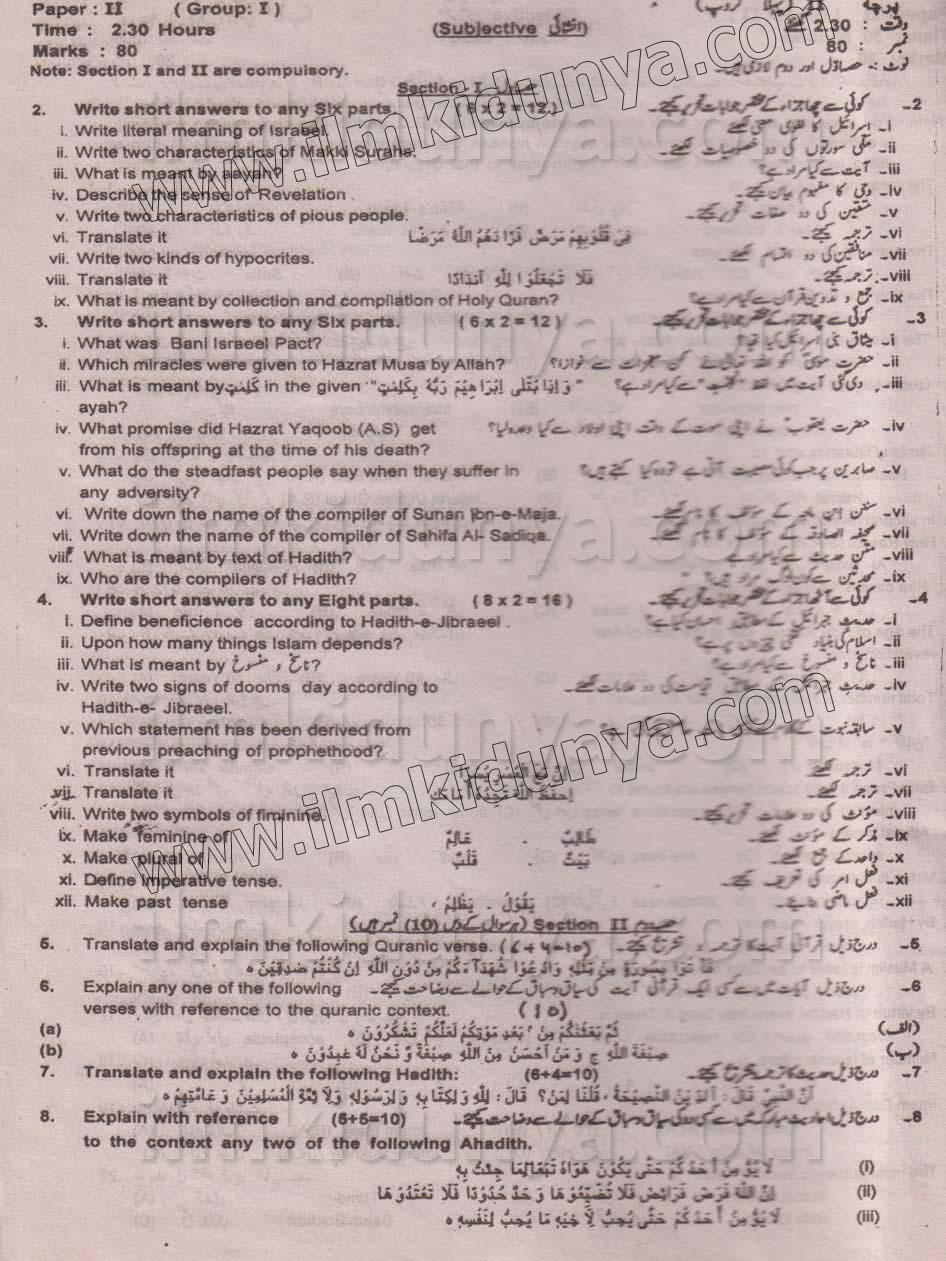 Paper : II ( Group: I ) پرچہ
Time : 2.30 Hours (Subjective انشائی) وقت : 2.30 گھنٹے
Marks : 80 نمبر : 80
Note: Section I and II are compulsory. نوٹ :۔ حصہ اول اور دوم لازمی ہیں۔
Section - I حصہ اول
2. Write short answers to any Six parts. ( 6 x 2 = 12 ) کوئی سے چھ اجزاء کے مختصر جوابات تحریر کیجئے۔ 2۔
i. Write literal meaning of Israeel. اسرائیل کا لغوی معنی لکھئے i۔
ii. Write two characteristics of Makki Surahs. مکی سورتوں کی دو خصوصیات لکھئے۔ ii۔
iii. What is meant by aayah? آیت سے کیا مراد ہے؟ iii۔
iv. Describe the sense of Revelation . وحی کا مفہوم بیان کیجئے۔ iv۔
v. Write two characteristics of pious people. متقین کی دو صفات تحریر کیجئے۔ v۔
vi. Translate it فِىْ قُلُوْبِهِمْ مَرَضٌ فَزَادَهُمُ اللّٰهُ مَرَضًا ترجمہ کیجئے۔ vi۔
vii. Write two kinds of hypocrites. منافقین کی دو اقسام لکھئے۔ vii۔
viii. Translate it فَلَا تَجْعَلُوْا لِلّٰهِ اَنْدَادًا ترجمہ کیجئے۔ viii۔
ix. What is meant by collection and compilation of Holy Quran? جمع و تدوین قرآن سے کیا مراد ہے؟ ix۔
3. Write short answers to any Six parts. ( 6 x 2 = 12 ) کوئی سے چھ اجزاء کے مختصر جوابات تحریر کیجئے۔ 3۔
i. What was Bani Israeel Pact? میثاق بنی اسرائیل کیا تھا؟ i۔
ii. Which miracles were given to Hazrat Musa by Allah? حضرت موسیٰ کو اللہ تعالیٰ نے کن معجزات سے نوازا؟ ii۔
iii. What is meant by كَلِمٰتٍ in the given "وَ اِذِ ابْتَلٰٓى اِبْرَاهِيْمَ رَبُّهٗ بِكَلِمٰتٍ" دی گئی آیت میں لفظ "كلمٰت" سے کیا مراد ہے؟ iii۔
ayah?
iv. What promise did Hazrat Yaqoob (A.S) get حضرت یعقوب نے اپنی موت کے وقت اپنی اولاد سے کیا وعدہ لیا؟ iv۔
from his offspring at the time of his death?
v. What do the steadfast people say when they suffer in صابرین پر جب کوئی مصیبت آتی ہے تو وہ کیا کہتے ہیں؟ v۔
any adversity?
vi. Write down the name of the compiler of Sunan Ibn-e-Maja. سنن ابن ماجہ کے مؤلف کا نام لکھئے۔ vi۔
vii. Write down the name of the compiler of Sahifa Al- Sadiqa. صحیفہ الصادقہ کے مؤلف کا نام لکھئے۔ vii۔
viii. What is meant by text of Hadith? متن حدیث سے کیا مراد ہے viii۔
ix. Who are the compilers of Hadith? محدثین سے کون لوگ مراد ہیں؟ ix۔
4. Write short answers to any Eight parts. ( 8 x 2 = 16 ) کوئی سے آٹھ اجزاء کے مختصر جوابات تحریر کیجئے۔ 4۔
i. Define beneficience according to Hadith-e-Jibraeel . حدیث جبرائیل کے مطابق احسان کیا ہے؟ i۔
ii. Upon how many things Islam depends? اسلام کی بنیاد کتنی چیزوں پر ہے؟ ii۔
iii. What is meant by ناسخ و منسوخ? ناسخ و منسوخ سے کیا مراد ہے؟ iii۔
iv. Write two signs of dooms day according to حدیث جبرائیل کے مطابق قیامت کی دو علامات لکھئے۔ iv۔
Hadith-e- Jibraeel.
v. Which statement has been derived from سابقہ نبوت کے v۔
previous preaching of prophethood?
vi. Translate it ترجمہ لکھئے vi۔
vii. Translate it ترجمہ لکھئے۔ vii۔
viii. Write two symbols of fiminine. مؤنث کی دو علامات تحریر کیجئے۔ viii۔
ix. Make feminine of طَالِبٌ . عَالِمٌ مذکر کے مؤنث لکھئے۔ ix۔
x. Make plural of بَيْتٌ . قَلْبٌ واحد کے جمع لکھئے۔ x۔
xi. Define imperative tense. فعل امر کی تعریف کیجئے۔ xi۔
xii. Make past tense يَقُوْلُ . يَظْلِمُ فعل ماضی بنایئے۔ xii۔
حصہ دوم Section II (ہر سوال کے دس (10) نمبر ہیں)
5. Translate and explain the following Quranic verse. (6+4=10) درج ذیل قرآنی آیت کا ترجمہ و تشریح کیجئے۔ 5۔
فَاْتُوْا بِسُوْرَةٍ مِنْ مِّثْلِهٖ وَادْعُوْا شُهَدَآءَكُمْ مِنْ دُوْنِ اللّٰهِ اِنْ كُنْتُمْ صٰدِقِيْنَ ه
6. Explain any one of the following درج ذیل آیات میں سے کسی ایک قرآنی آیت کی سیاق و سباق کے حوالے سے وضاحت کیجئے۔ 6۔
verses with reference to the quranic context. (10)
(a) ثُمَّ بَعَثْنٰكُمْ مِنْ ۢ بَعْدِ مَوْتِكُمْ لَعَلَّكُمْ تَشْكُرُوْنَ ه (الف)
(b) صِبْغَةَ اللّٰهِ ج وَ مَنْ اَحْسَنُ مِنَ اللّٰهِ صِبْغَةً وَّ نَحْنُ لَهٗ عٰبِدُوْنَ ه (ب)
7. Translate and explain the following Hadith: (6+4=10) درج ذیل حدیث کا ترجمہ و تشریح کیجئے۔ 7۔
اَنَّ النَّبِيَّ قَالَ: اَلدِّيْنُ النَّصِيْحَةُ، قُلْنَا لِمَنْ؟ قَالَ: لِلّٰهِ وَ لِكِتَابِهٖ وَ لِرَسُوْلِهٖ وَ لِاَئِمَّةِ الْمُسْلِمِيْنَ وَ عَامَّتِهِمْ ه
8. Explain with reference (5+5=10) درج ذیل احادیث مبارکہ میں سے کسی دو کی سیاق و سباق کے حوالے سے وضاحت کیجئے۔ 8۔
to the context any two of the following Ahadith.
لَا يُؤْمِنُ اَحَدُكُمْ حَتّٰى يَكُوْنَ هَوَاهُ تَبَعًا لِمَا جِئْتُ بِهٖ (i)
اِنَّ اللّٰهَ فَرَضَ فَرَائِضَ فَلَا تُضَيِّعُوْهَا وَ حَدَّ حُدُوْدًا فَلَا تَعْتَدُوْهَا (ii)
لَا يُؤْمِنُ اَحَدُكُمْ حَتّٰى يُحِبَّ لِاَخِيْهِ مَا يُحِبُّ لِنَفْسِهٖ ه (iii)
www.ilmkidunya.com
www.ilmkidunya.com